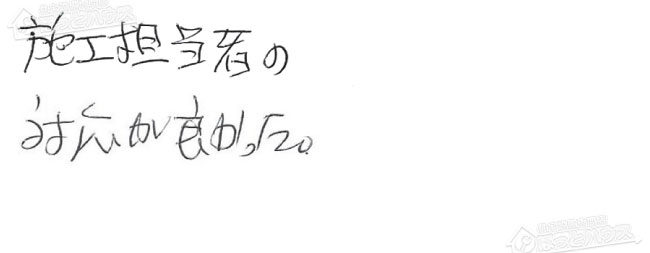 施工担当者の
対応が良かった。